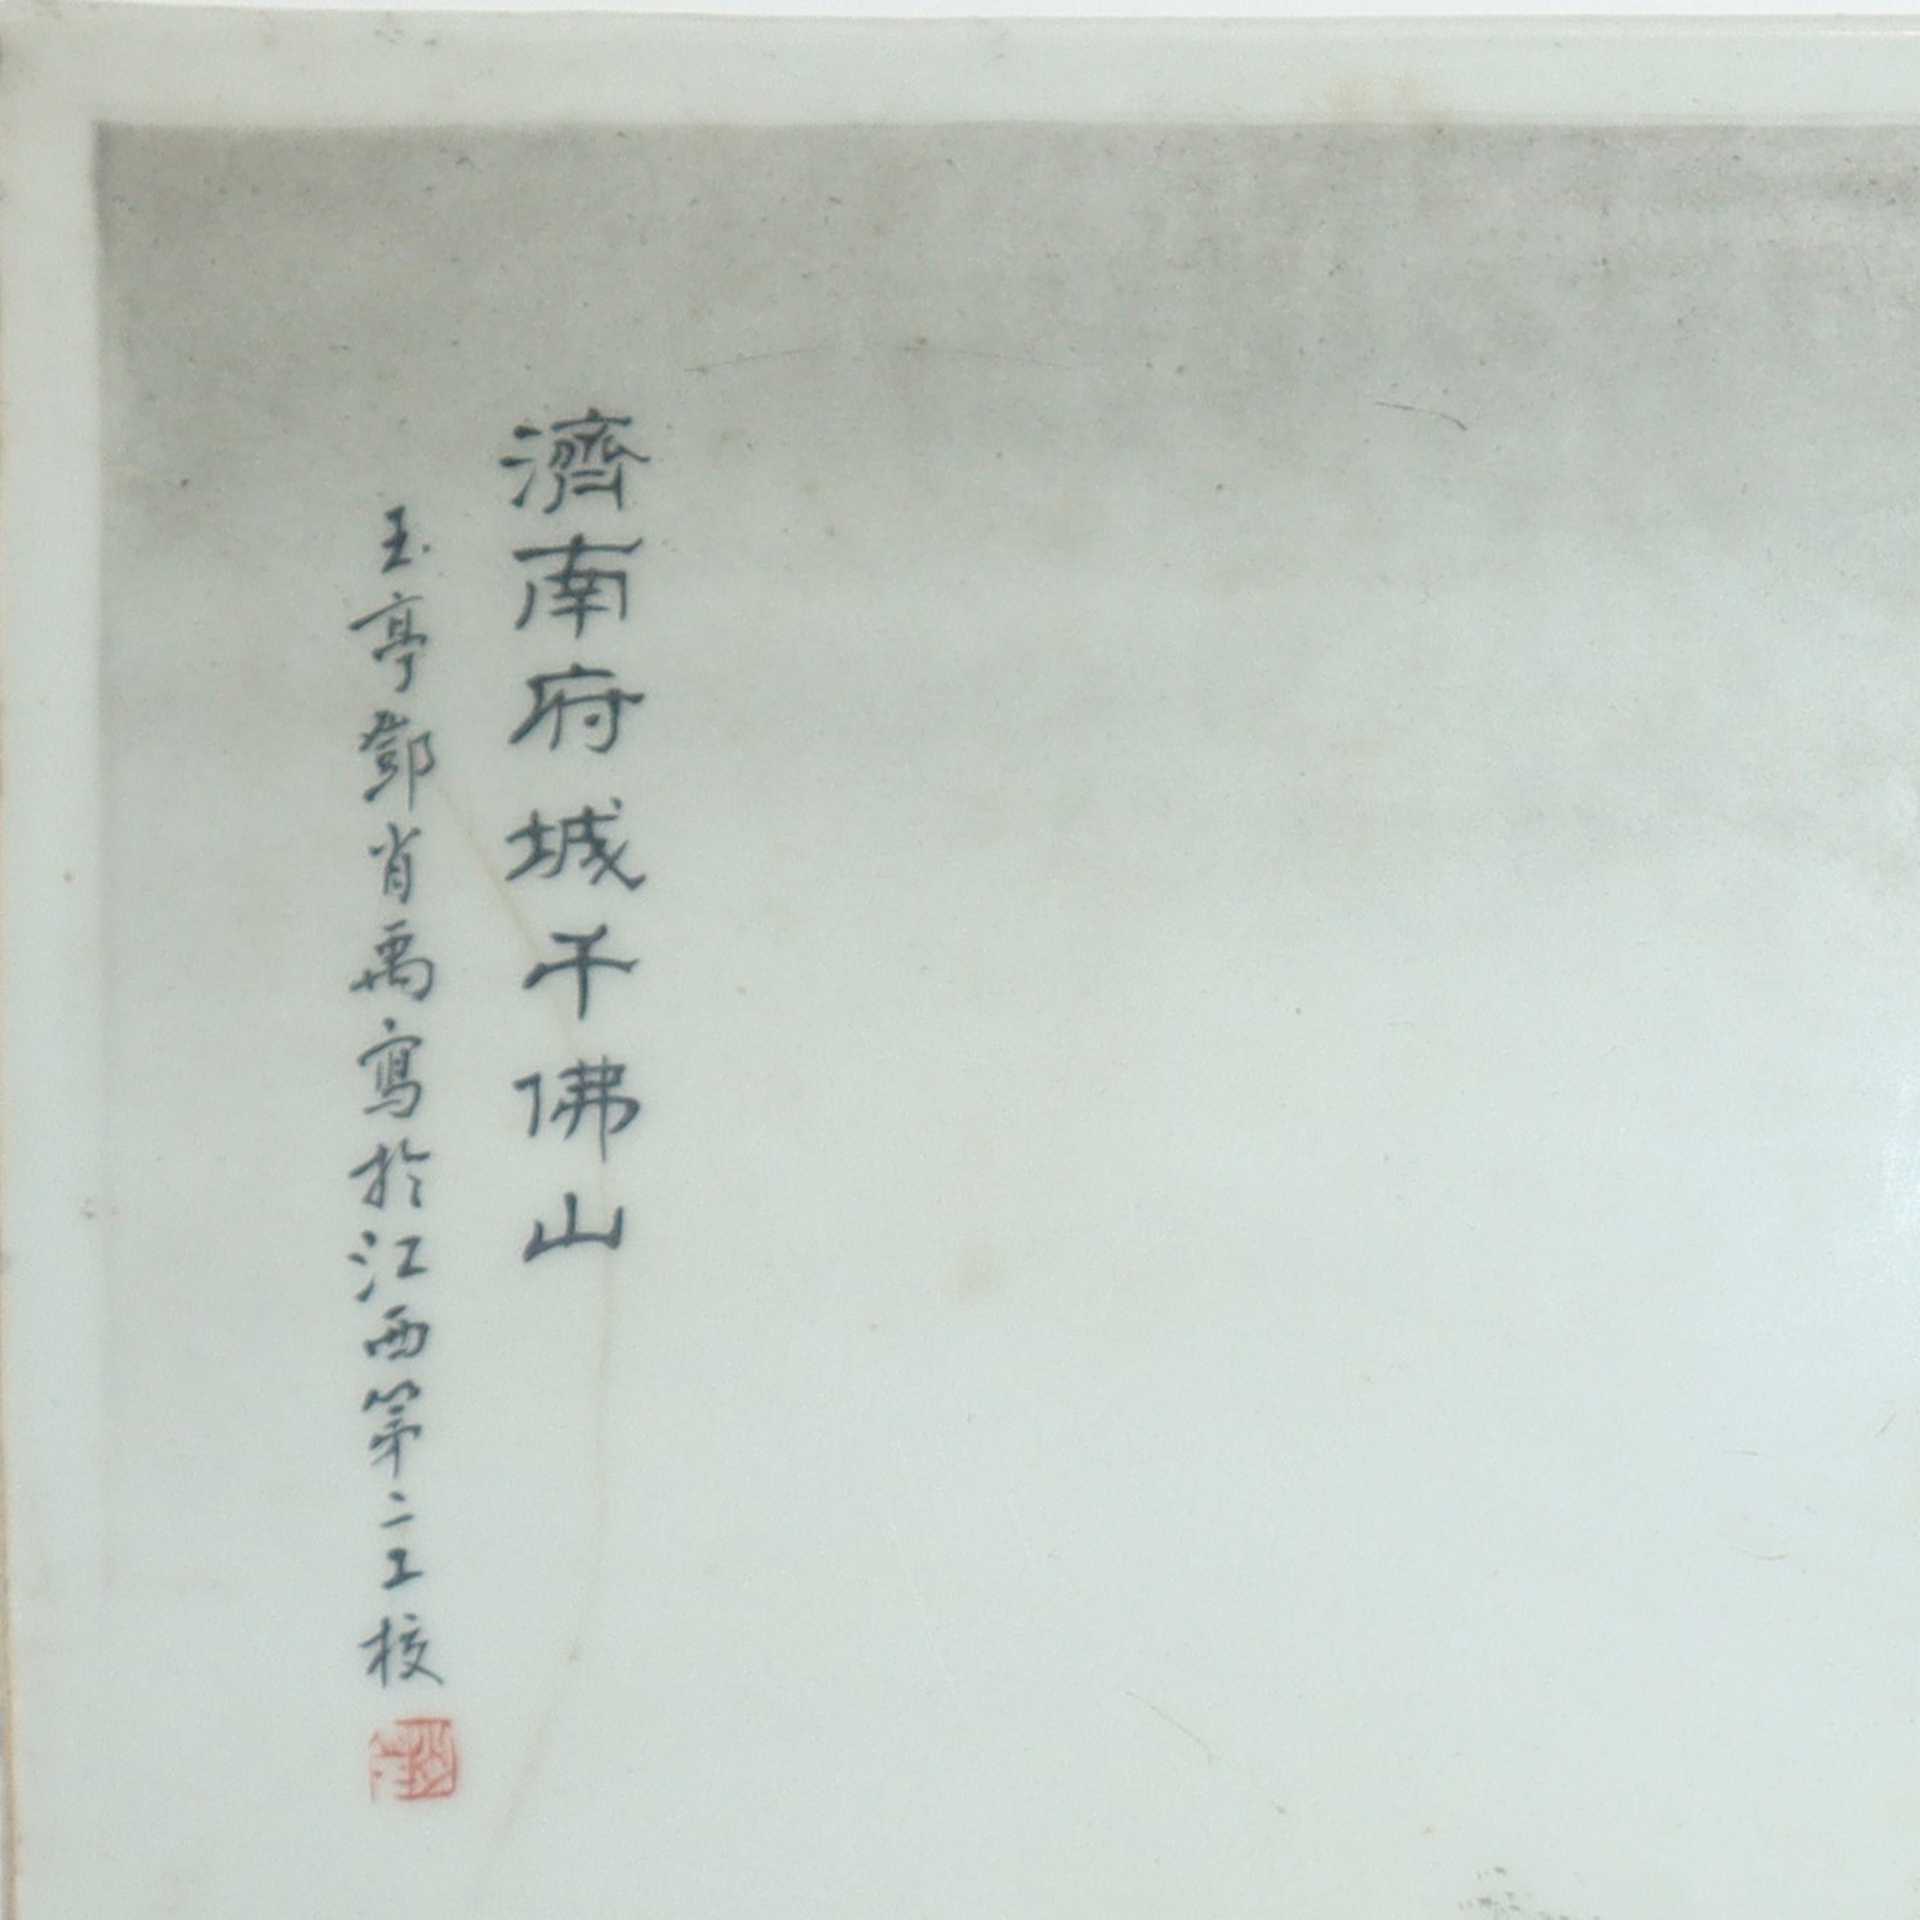 濟南府城千佛山
玉亭鄧肖禹寫於江西第二工校